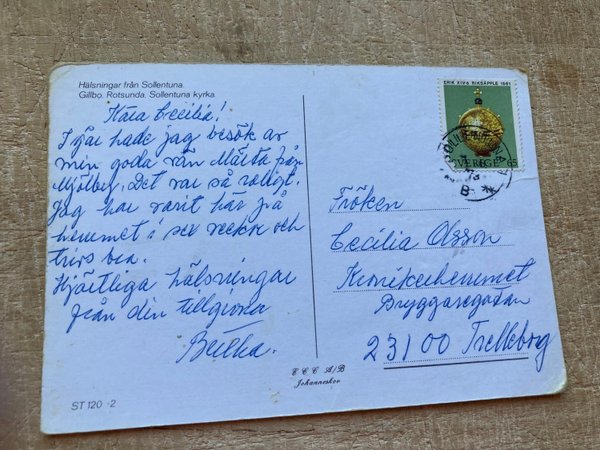 Hälsningar från Sollentuna.
Gillbo. Rotsunda. Sollentuna kyrka.
Kära Cecilia!
I går hade jag besök av
min goda vän Märta från
Mjölby. Det var så roligt.
Jag har varit här på
hemmet i sex veckor och
trivs bra.
Hjärtliga hälsningar
från din tillgivna
ERIK XIV:s RIKSÄPPLE 1561
SVERIGE 65
SOLLENTUNA
B
Fröken
Cecilia Olsson
Kronikerhemmet
Bryggaregatan
23100 Trelleborg
E C C A/B
Johanneshov
ST 120 -2